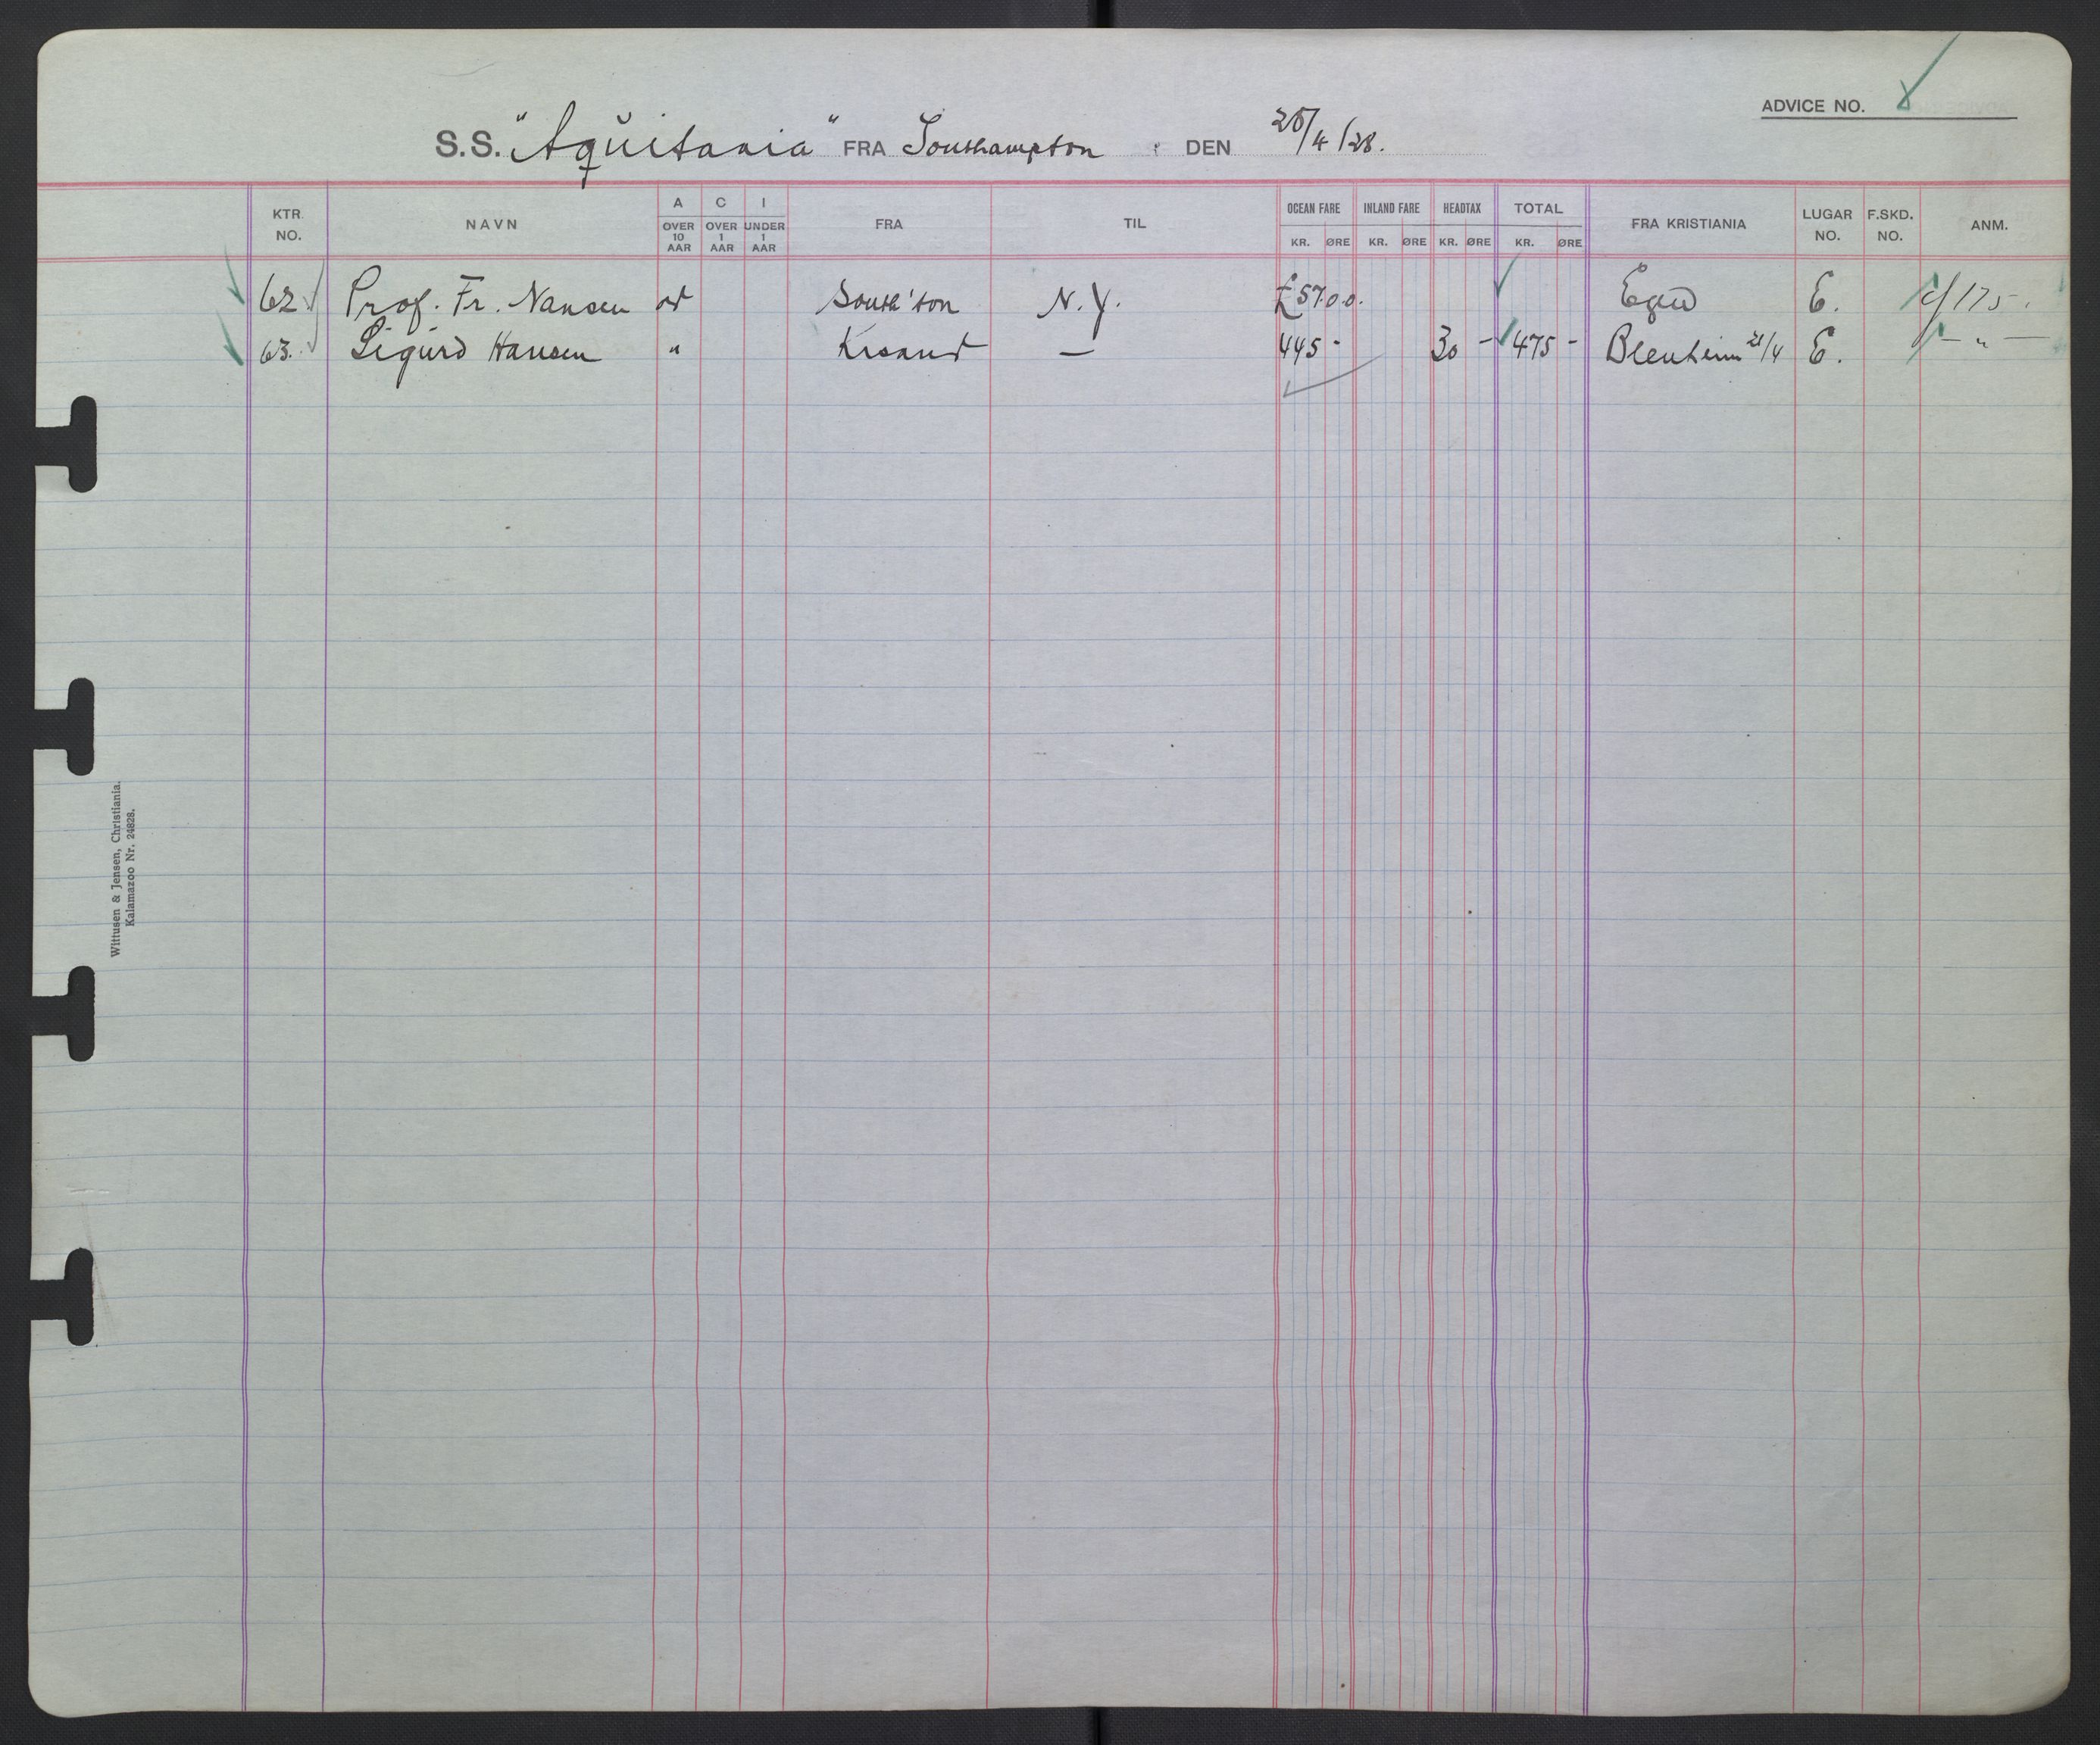 ADVICE NO. 8
S.S. "Aqŭitania" FRA Southampton DEN 25/4/28.
KTR. NO. NAVN A OVER 10 AAR C OVER 1 AAR I UNDER 1 AAR FRA TIL OCEAN FARE KR. ØRE INLAND FARE KR. ØRE HEADTAX KR. ØRE TOTAL KR. ØRE FRA KRISTIANIA LUGAR NO. F.SKD. NO. ANM.
62 Prof. Fr. Nansen South'ton N.Y. £57.0.0. E. c/175.
63. Sigŭrd Hansen " Krsand — 445 - 30 - 475 - Blenheim 21/4 E. — " —
Wittusen & Jensen, Christiania.
Kalamazoo Nr. 24828.